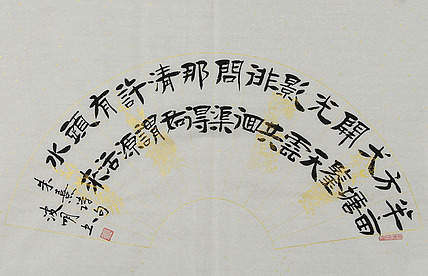 半亩
方塘
弌鑒
開天
光雲
影共
徘徊
問渠
那得
清如
許謂
有源
頭活
水来
朱熹詩句